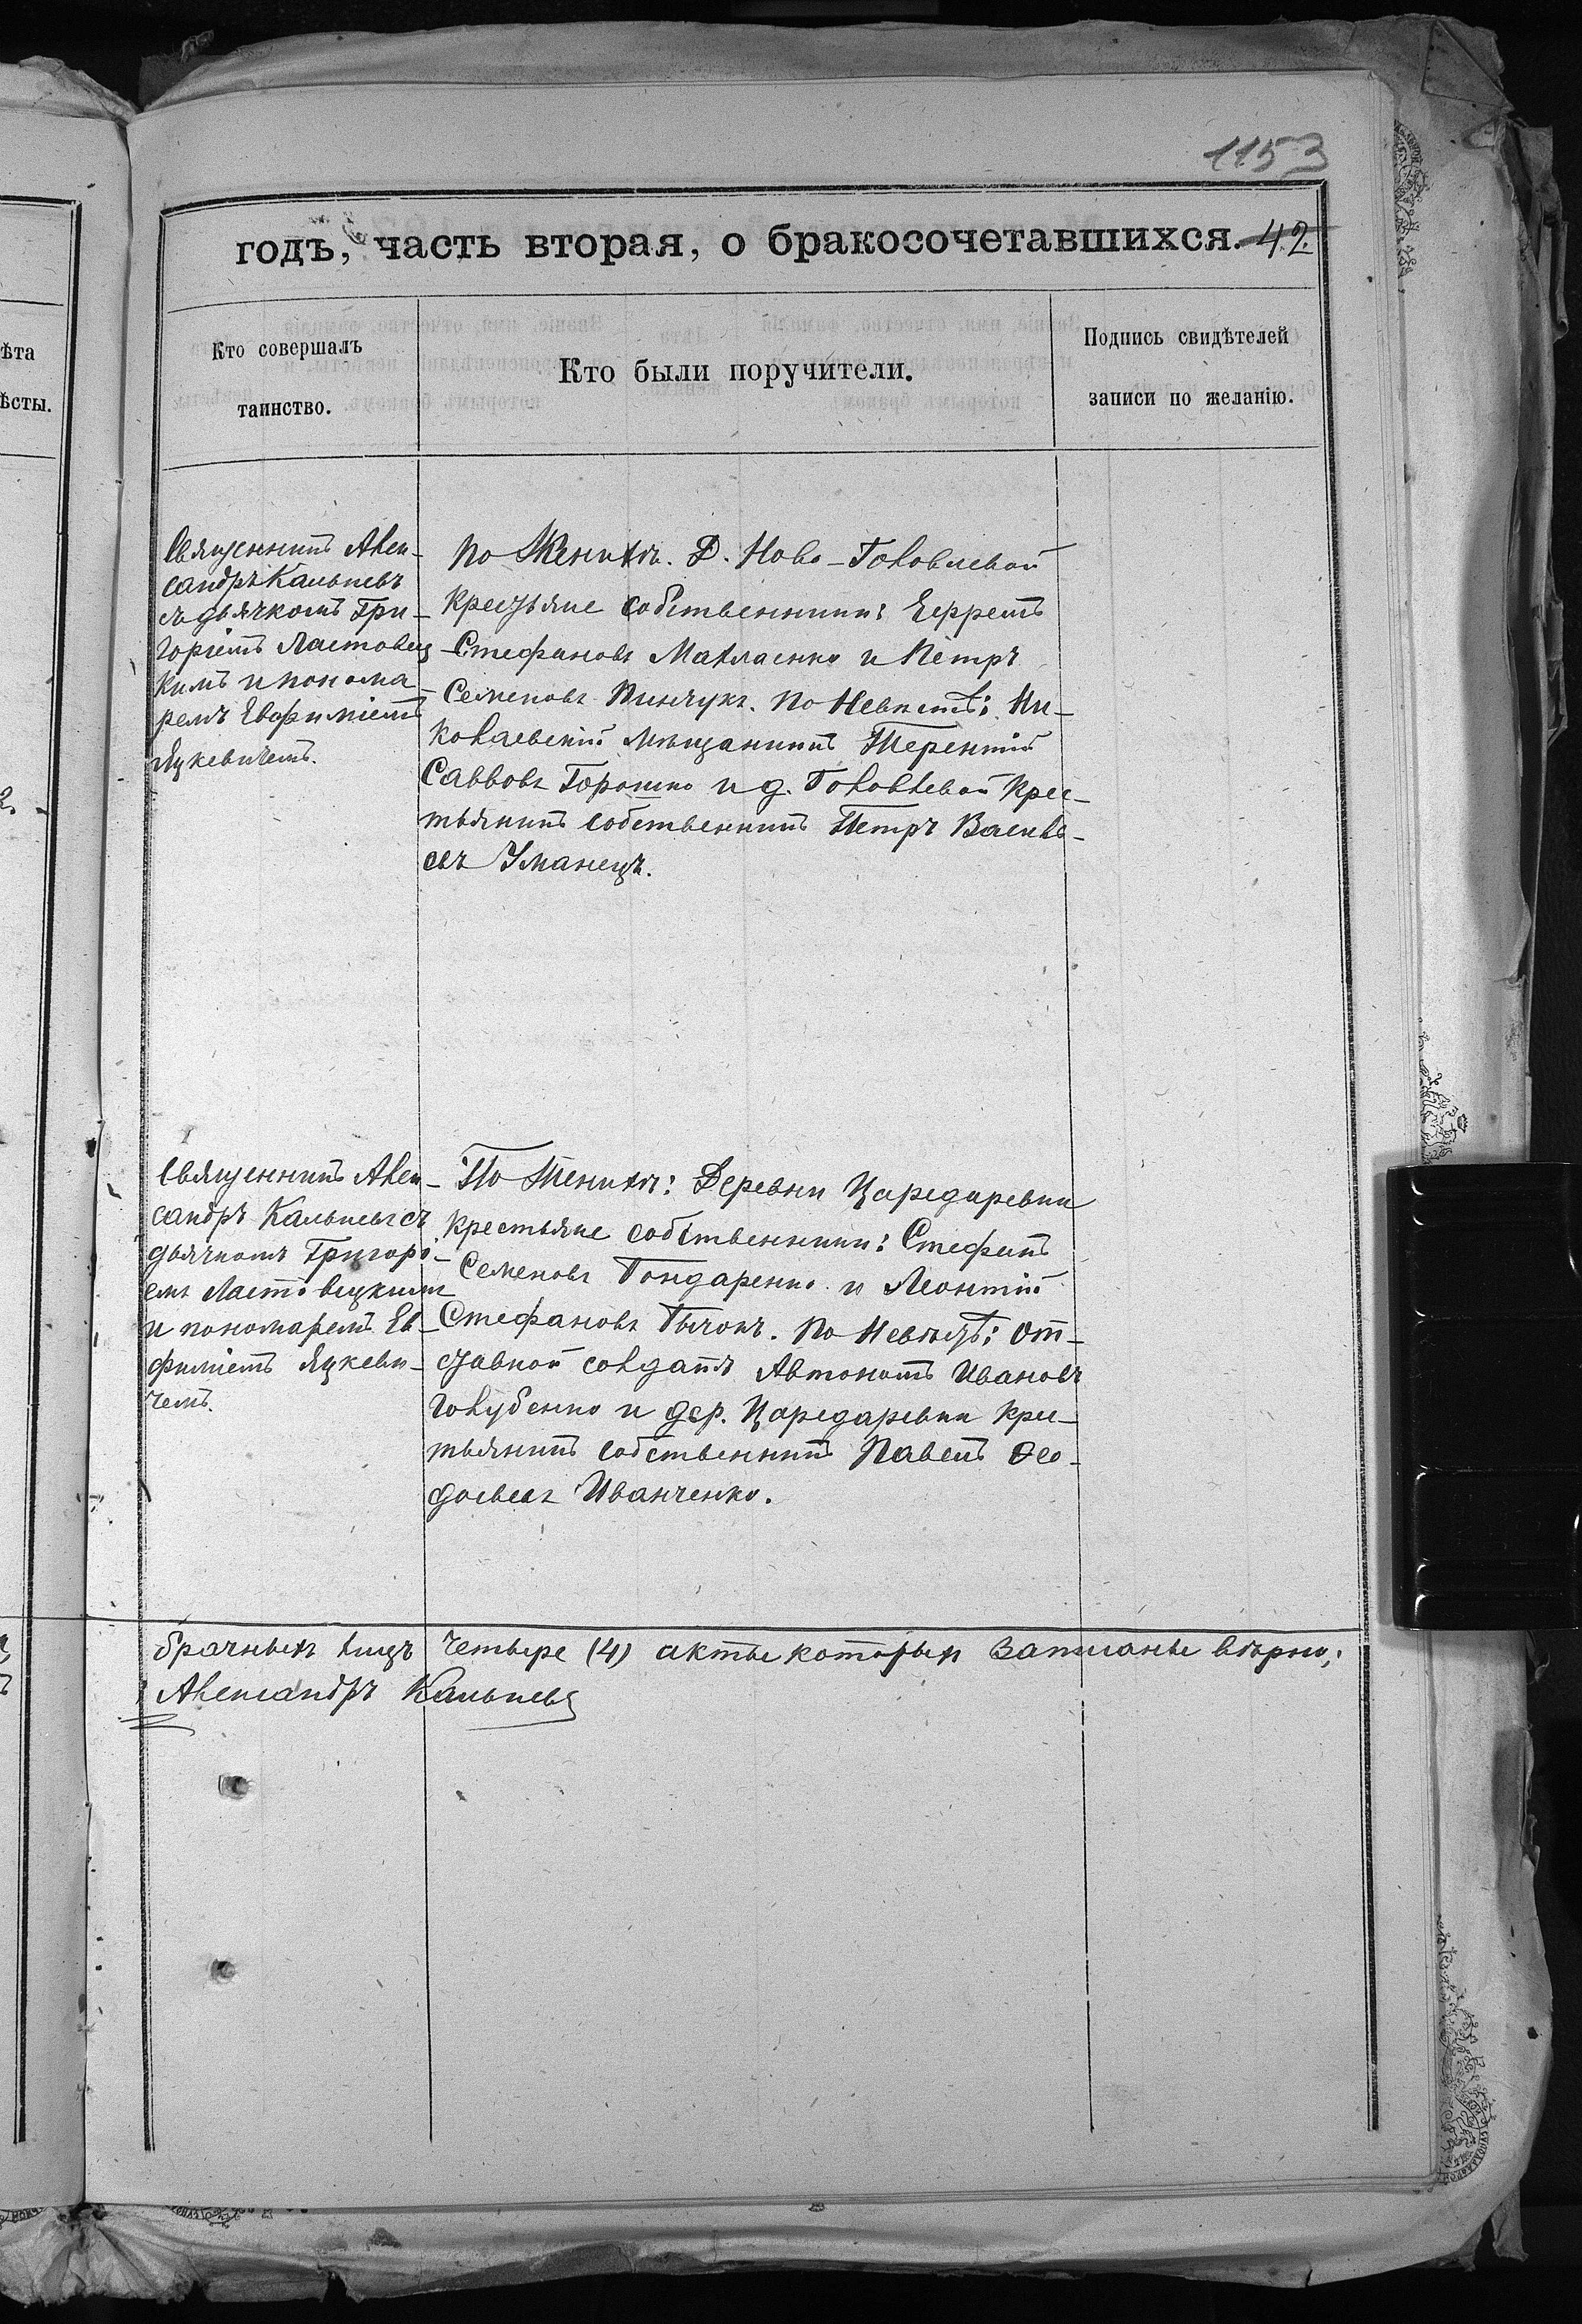 1153
годъ, часть вторая, о бракосочетавшихся. 42.
Кто совершалъ
таинство.
Кто были поручители.
Подпись свидѣтелей
записи по желанію.
ѣта
ѣсты.
Священникъ Алек-
сандръ Кальневъ
съ дьячкомъ Гри-
горіемъ Ластовец
кимъ и понома-
ремъ Евфиміемъ
Яцкевичемъ.
По Женихѣ. Д. Ново-Головлевой
Крестьяне собственники: Ефремъ
Стефановъ Махлаенко и Петръ
Семеновъ Пинчукъ. По Невѣстѣ: Ни-
колаевскій мѣщанинъ Терентій
Саввовъ Горошко и д. Головлевой Крес-
тьянинъ собственникъ Петръ Василь-
евъ Уманецъ.
Священникъ Алек-
сандръ Кальневъ съ
дьячкомъ Григорі-
емъ Ластовецкимъ
и пономаремъ Ев-
фиміемъ Яцкеви-
чемъ.
По Женихѣ: Деревни Царедаревки
крестьяне собственники: Стефанъ
Семеновъ Бондаренко и Леонтій
Стефановъ Бычокъ. По Невѣстѣ: От-
ставной солдатъ Автономъ Ивановъ
Голубенко и дер. Царедаревки Крес-
тьянинъ собственникъ Павелъ Ѳео-
досьевъ Иванченко.
брачныхъ лицъ четыре (4) акты которыхъ записаны вѣрно;
Александръ Кальневъ